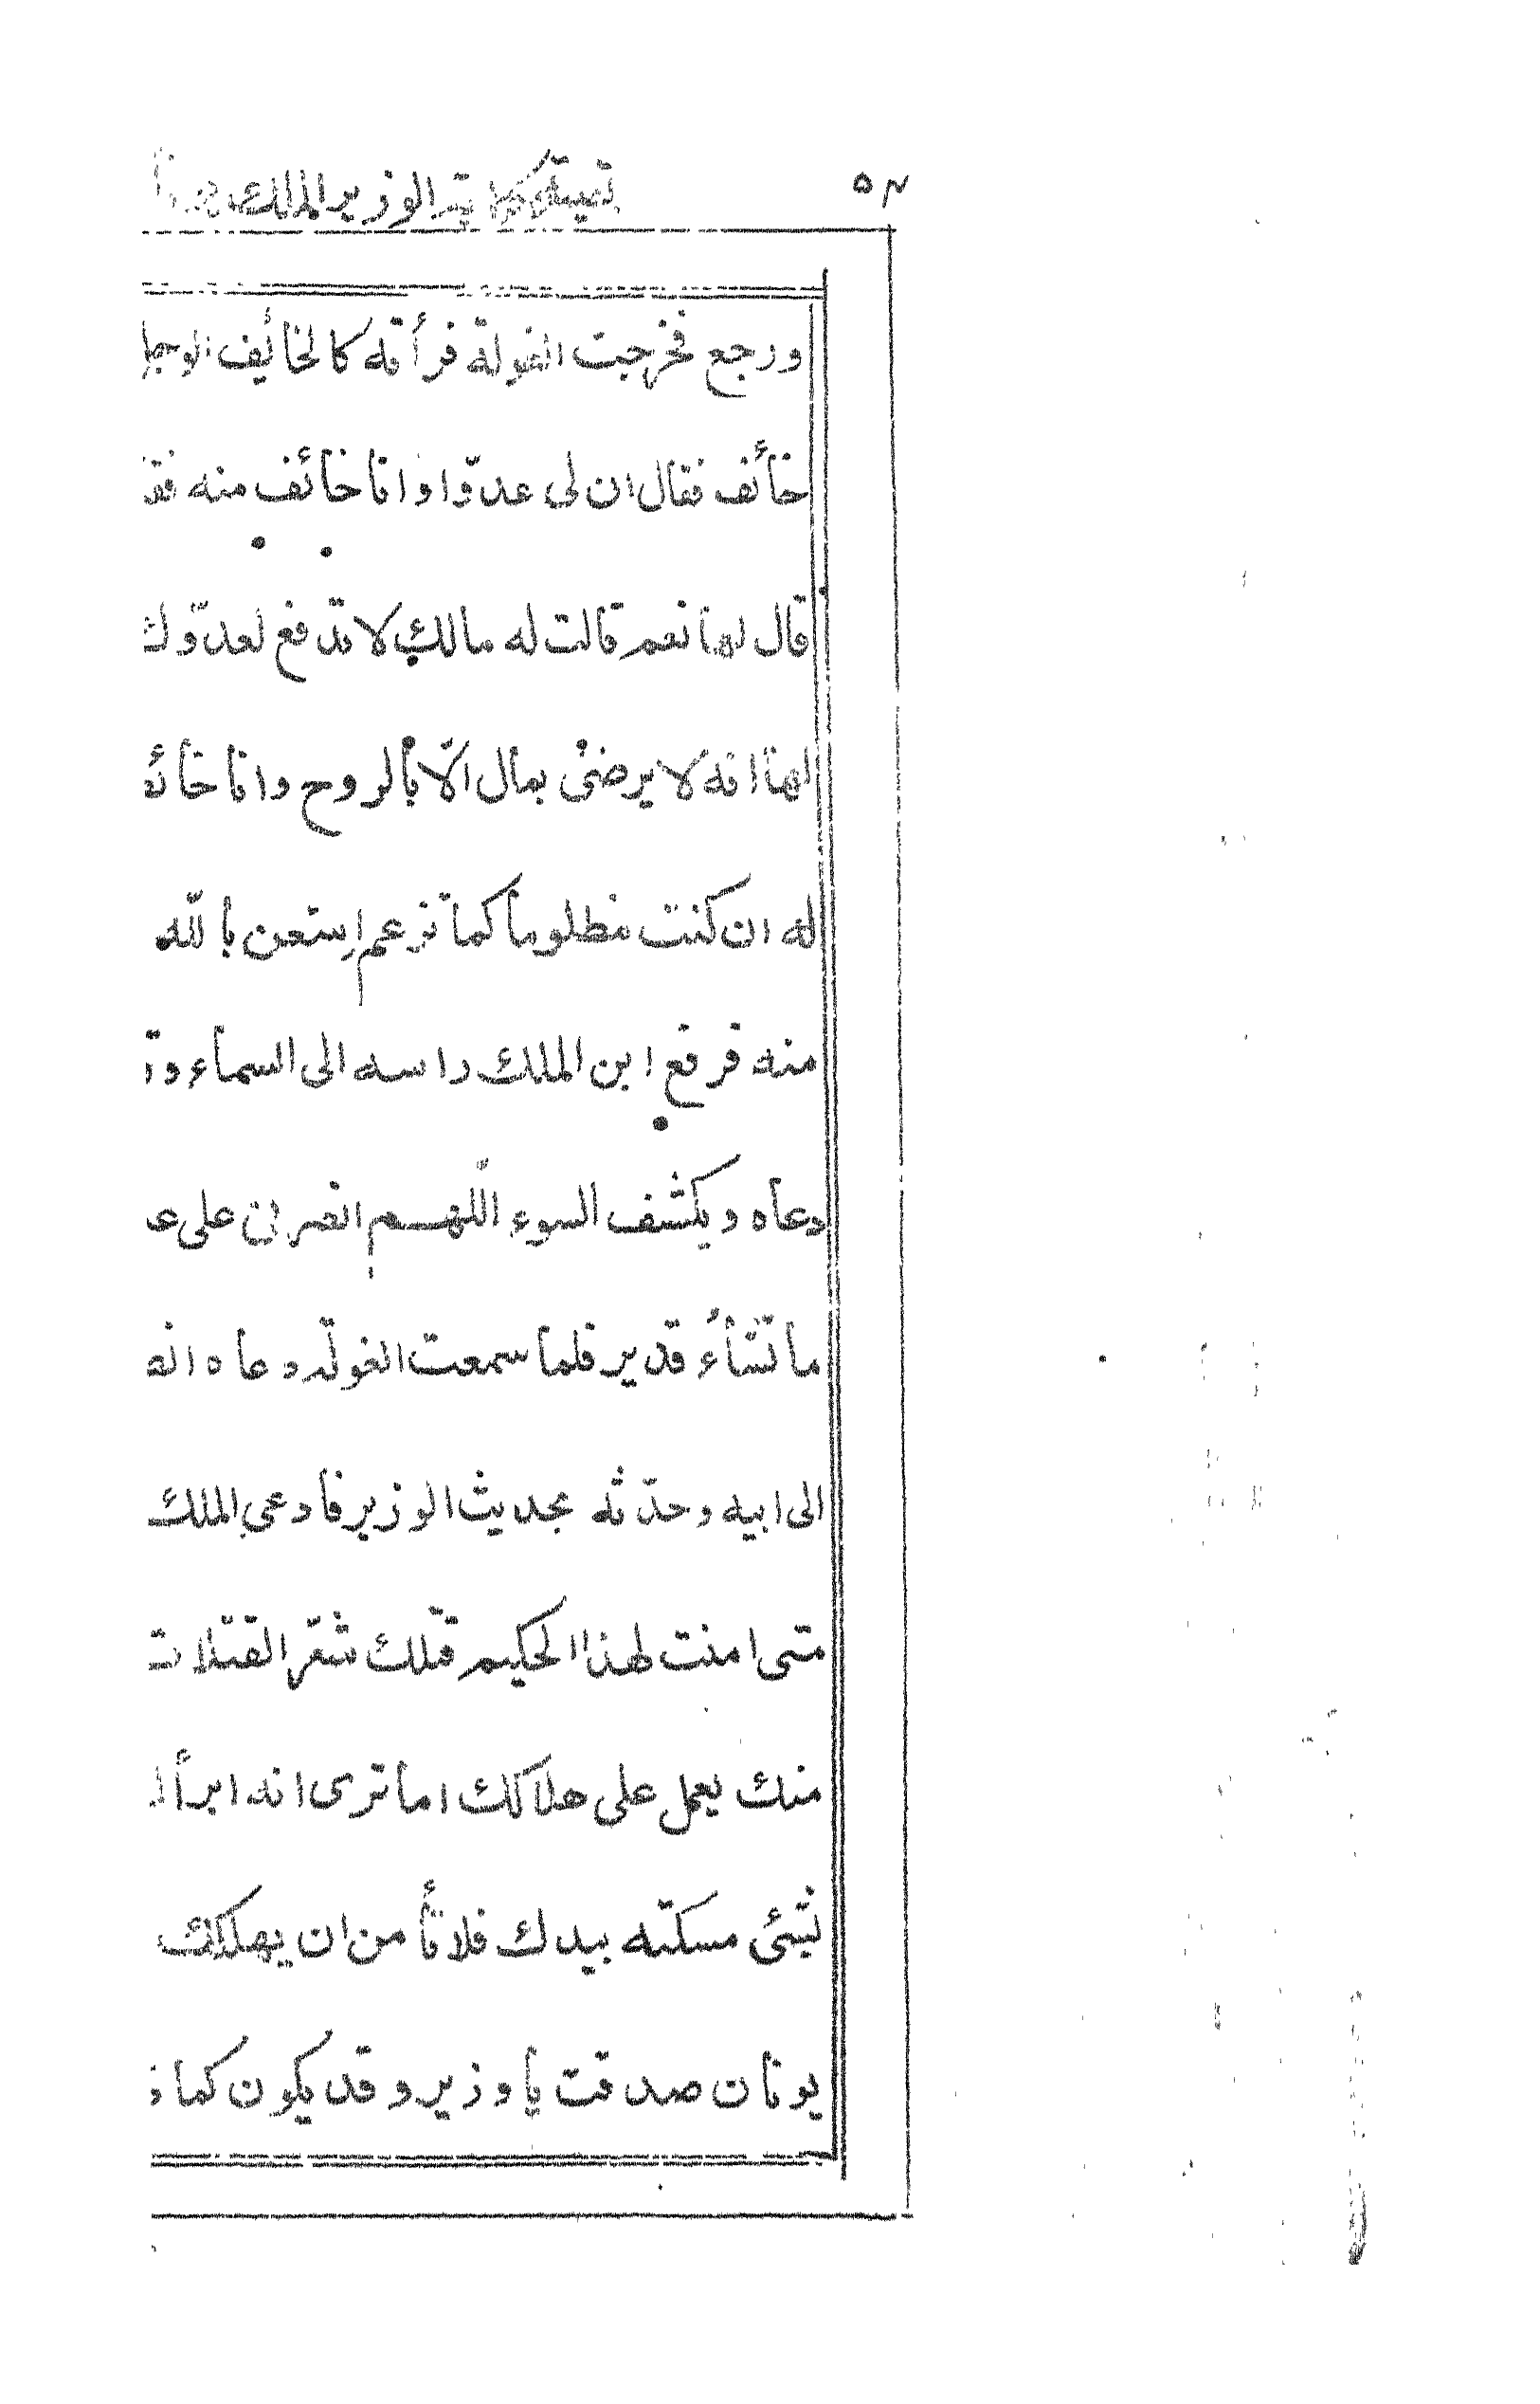 الوزير الملك
ورجع فخرجت الغولة فرأته كالخائف الوجل
خائف فقال ان لى عدوّا وانا خائف منه
قال لها نعم قالت له مالك لا تدفع لعدوّك
لها انه لا يرضى بمال الّا بالروح وانا
له ان كنت مظلوما كما تزعم اِستعن بالله
منه فرفع ابن الملك راسه الى السماء
دعاه ويكشف السوء اللّهم انصرنى على
ما تشاءُ قدير فلما سمعت الغولة دعاه
الى ابيه وحدّثه بحديث الوزير فادعى الملك
متى امنت لهذا الحكيم قتلك شقر القتلات
منك يعمل على هلاكك اما ترى انه ابرأ
بشئ مسكته بيدك فلا تأمن ان يهلكك
يونان صدقت يا وزير وقد يكون كما